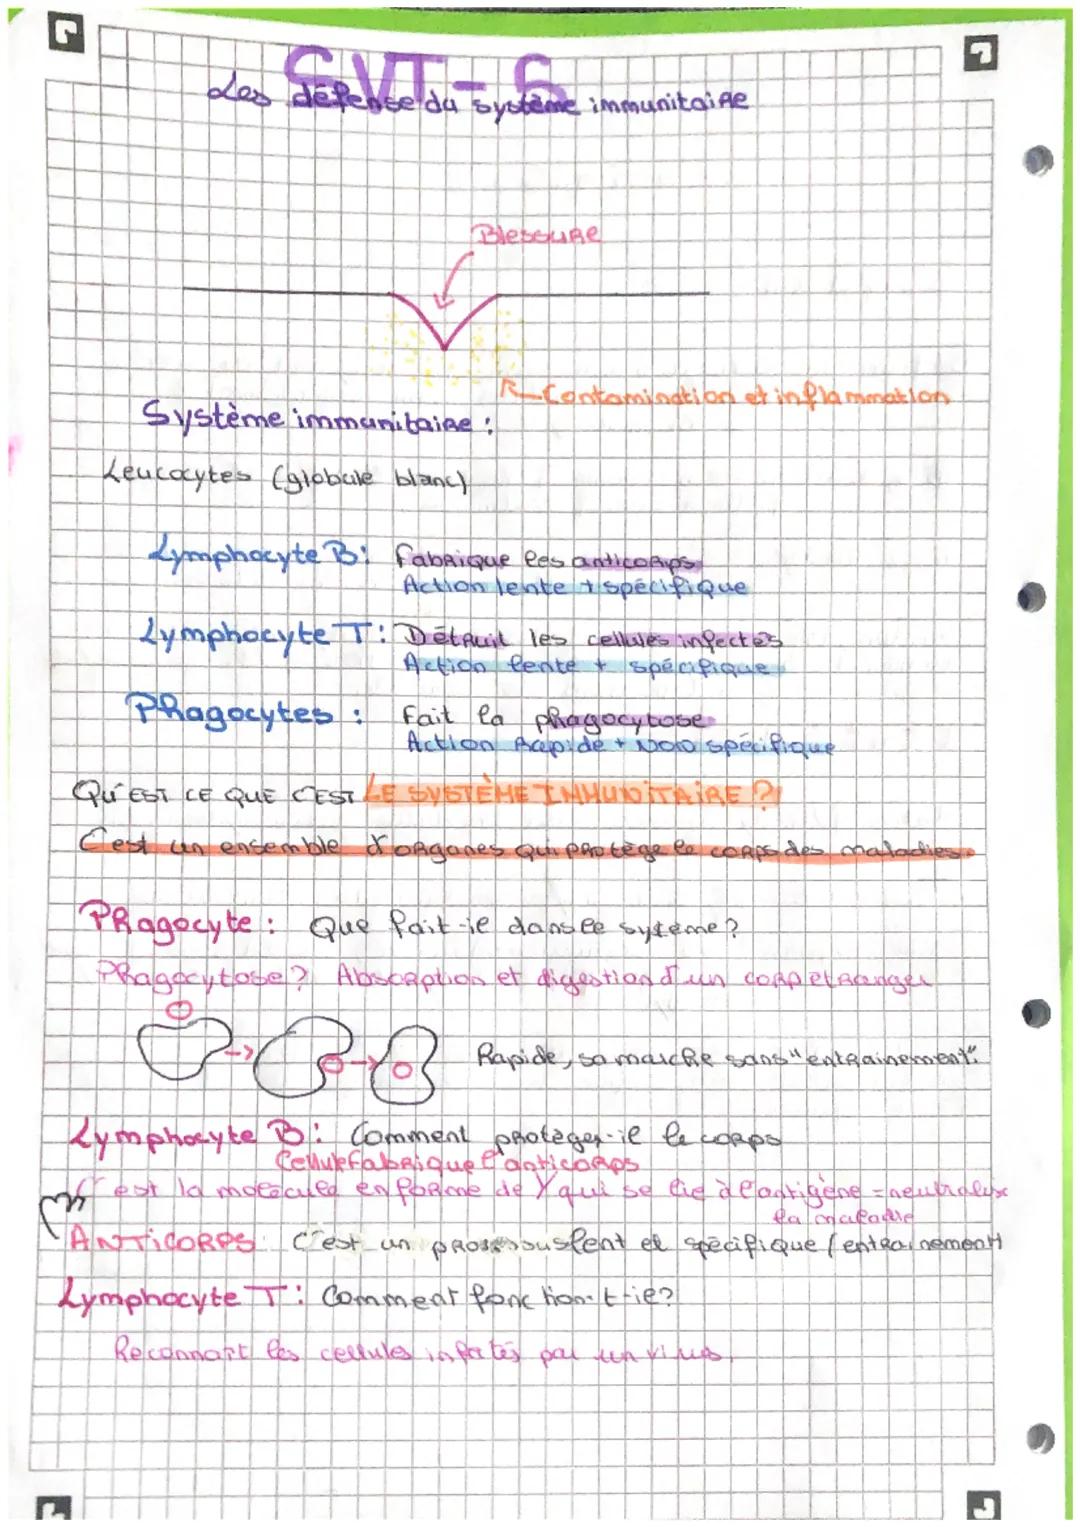 SVT-6
Les défense du système immunitaire
Blessure
Contamination et inflammation
Système immunitaire :
Leucocytes (globule blanc)
Lymphocyte B: Fabrique les anticorps
Action lente + spécifique
Lymphocyte T: Détruit les cellules infectés
Action lente + spécifique
Phagocytes : Fait la phagocytose
Action Rapide + Non spécifique
QU'EST CE QUE C'EST LE SYSTÈME IMMUNITAIRE ?
C'est un ensemble d'organes qui protège le corps des maladies.
Phagocyte : Que fait-il dans le système ?
Phagocytose ? Absorption et digestion d'un corp étranger
Rapide, sa marche sans "entrainement".
Lymphocyte B : Comment protéger-il le corps
Cellule fabrique l'anticorps
C'est la molécule en forme de Y qui se lie à l'antigène = neutralise
la maladie
ANTICORPS C'est un lent et spécifique (entrainement)
Lymphocyte T : Comment fonction-t-il ?
Reconnait les cellules infectés par un virus.